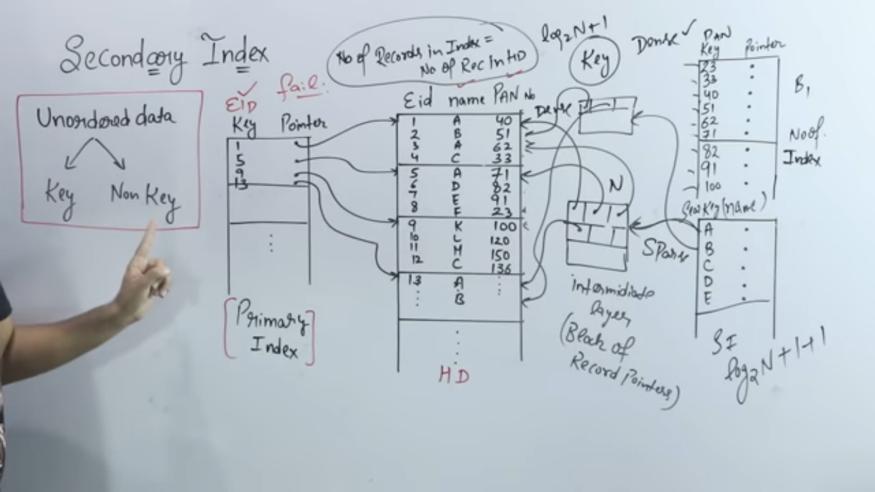 Secondary Index
Unordered data
Key
Non Key
EID ✓
fail.
Key
Pointer
1
5
9
13
[Primary Index]
No of Records in Index =
No of Rec In HD
Eid name PAN No
1 A 40
2 B 51
3 A 62
4 C 33
5 A 71
6 D 82
7 E 91
8 F 23
9 K 100
10 L 120
11 M 150
12 C 136
13 A
B
HD
log2N+1
Key
Dense
N
intermidiate
layer
(Block of
Record Pointers)
Dense ✓
PAN
Key
Pointer
23
33
40
51
62
71
82
91
100
B1
No of.
Index
Key (name)
A
B
C
D
E
Spars
SI
log2N+1+1